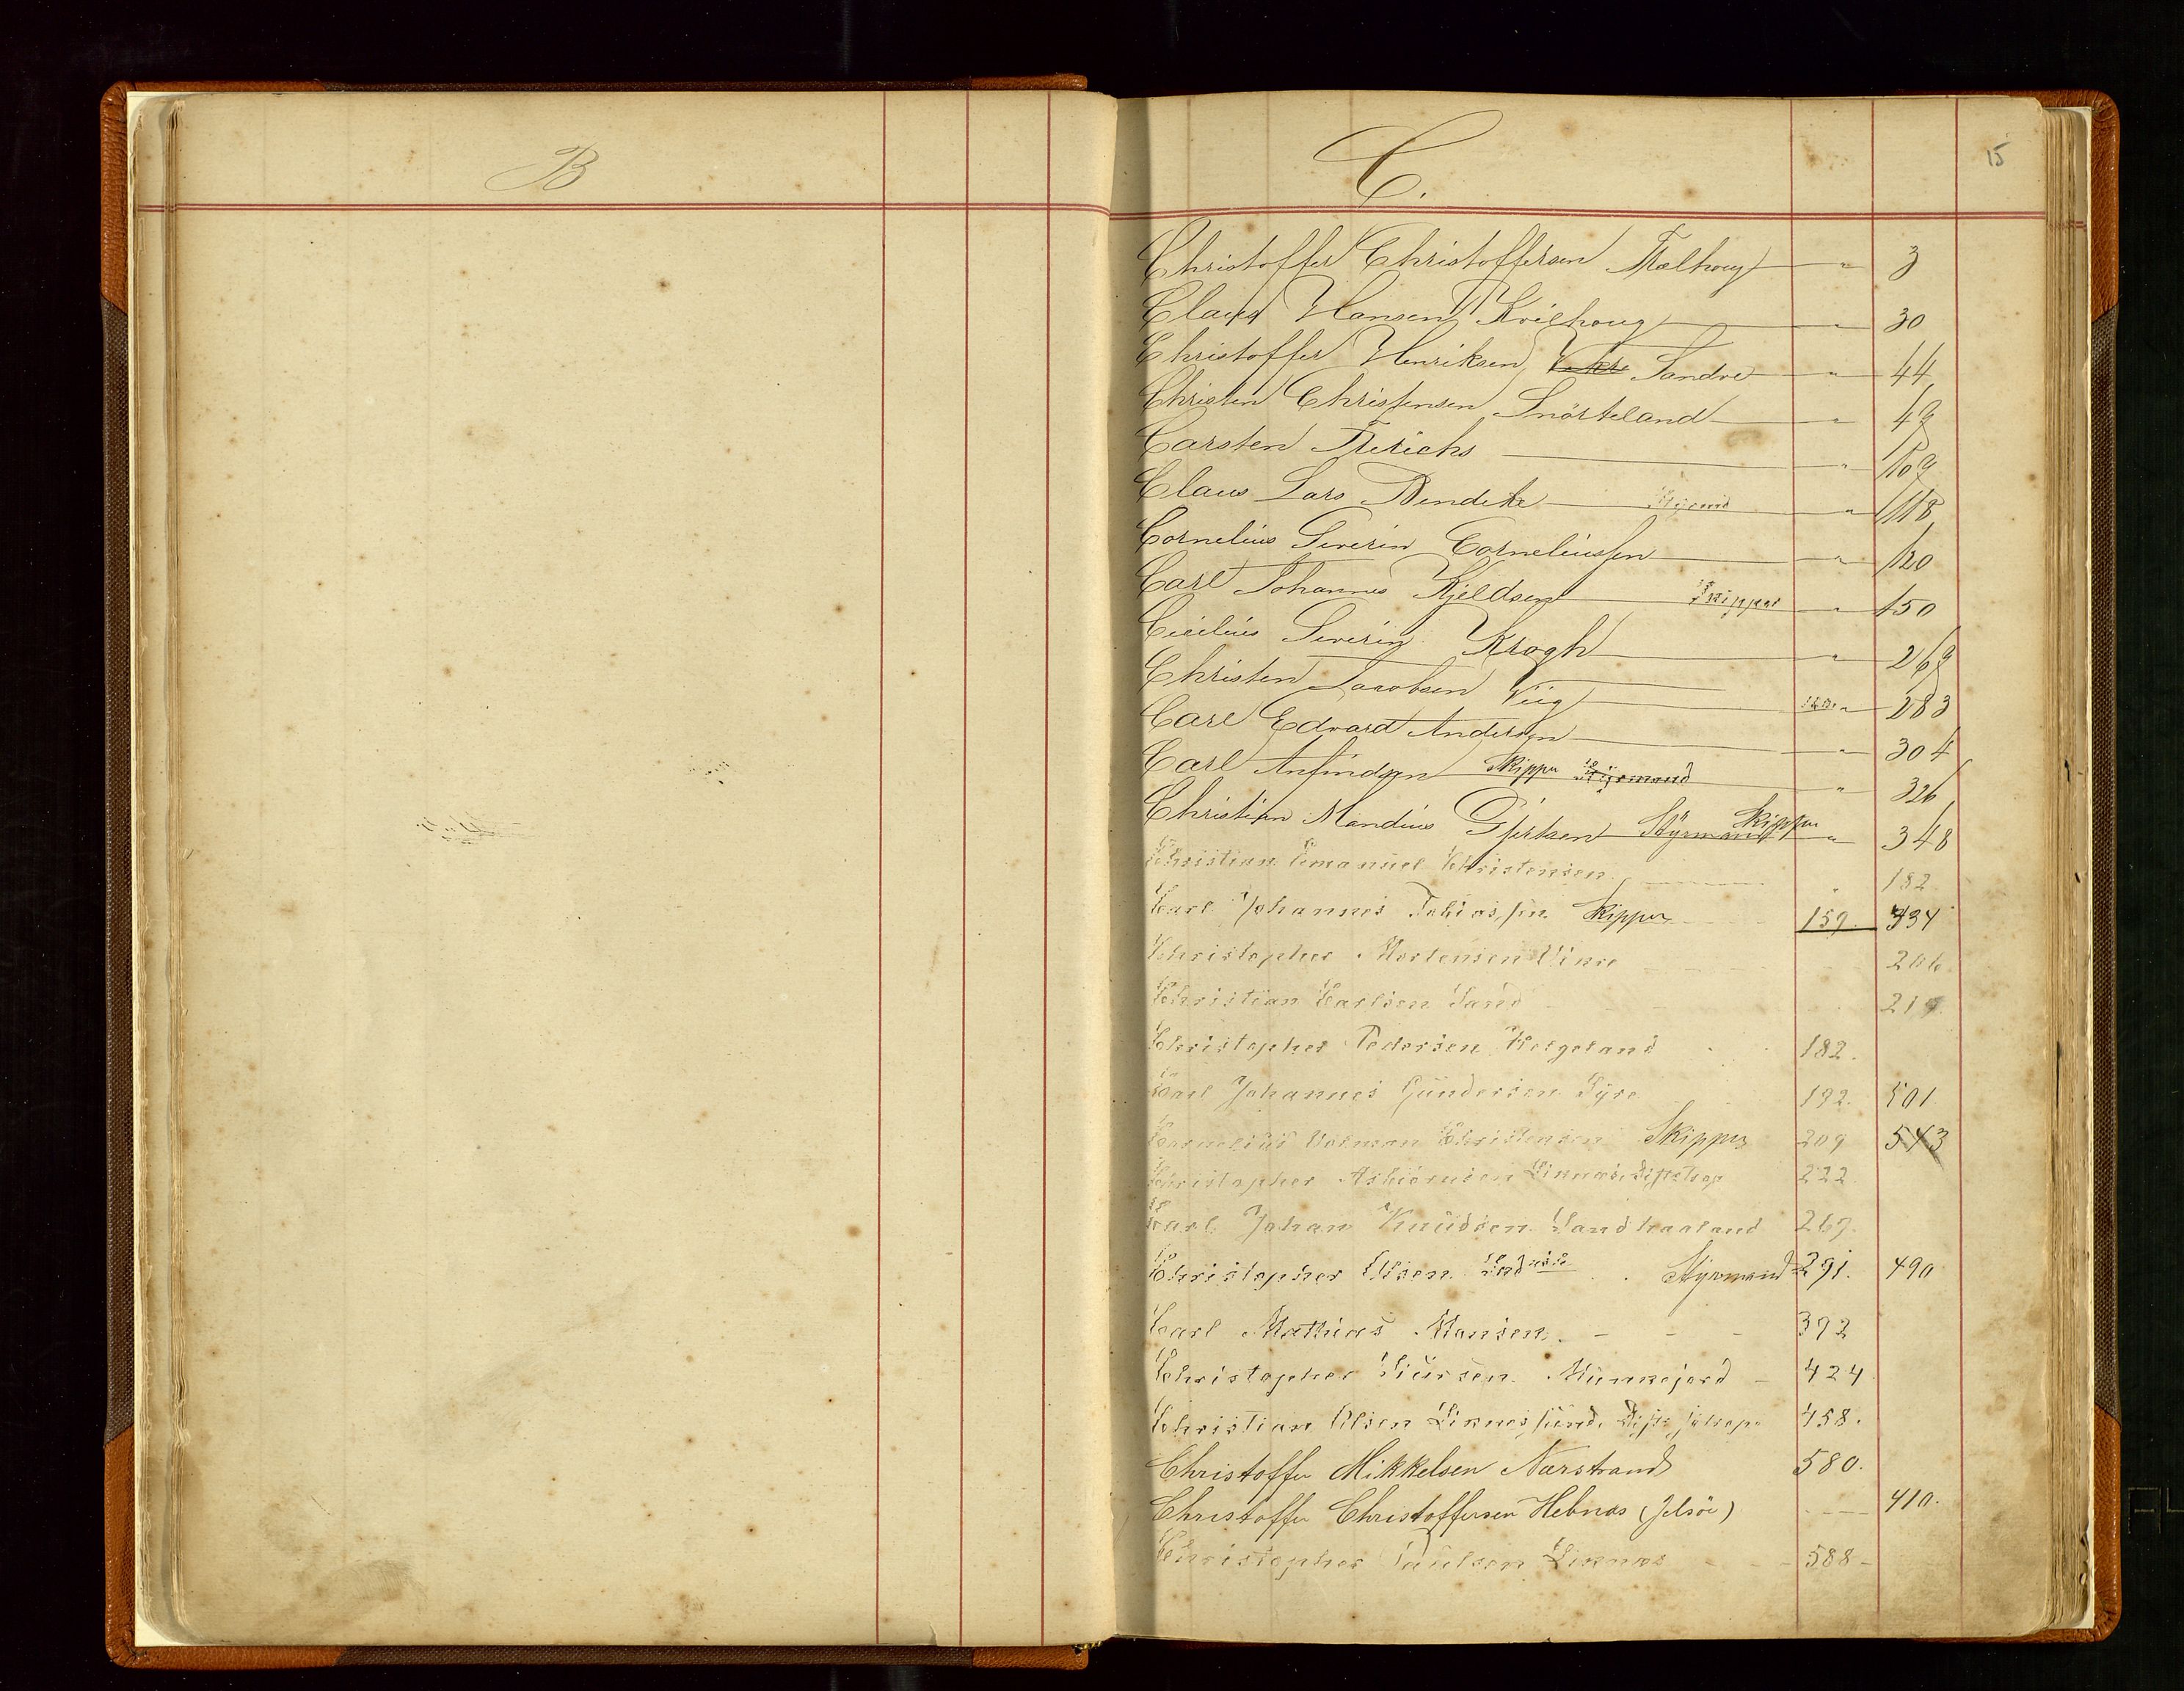 B
C.
15
Christoffer Christoffersen Trælhoug " 3
Claus Hansen Kvilhoug " 30
Christoffer Henriksen Sandve " 44
Christen Christensen Snörteland " 49
Carsten Frerichs " 109
Claus Lars Bendeke Styrmd " 118
Cornelius Severin Corneliussen " 120
Carl Johannes Kjeldsen Skipper " 150
Cicilius Severin Krogh " 269
Christen Jacobsen Viig " 283
Carl Edvard Andersen " 304
Carl Anfindsen Skipper Styrmand " 326
Christian Mandius Gjertsen Styrmand Skipper " 348
Christian Emanuel Christensen " 182
Carl Johannes Tobiassen Skipper 159. 434
Christopher Mortensen Vinre 206.
Christian Carlsen Sand 219.
Christopher Pedersen Helgeland 182.
Carl Johannes Gundersen Tyre 192. 501
Cornelius Volman Christensen Skipper 209 543
Christopher Asbiørnsen Liknæs, 222
Carl Johan Knudsen Sandhaaland 267.
Christopher Olsen Styrmand 291. 490
Carl Mathias Hansen. - - - 392
Christopher Siursen Munnejord - 424
Christian Olsen Liknessund. 458.
Christoffer Mikkelsen Nærstrand 580.
Christoffer Christoffersen Hebnæs (Jelsöe) 410.
Christopher Paulsen Liknæs 588-